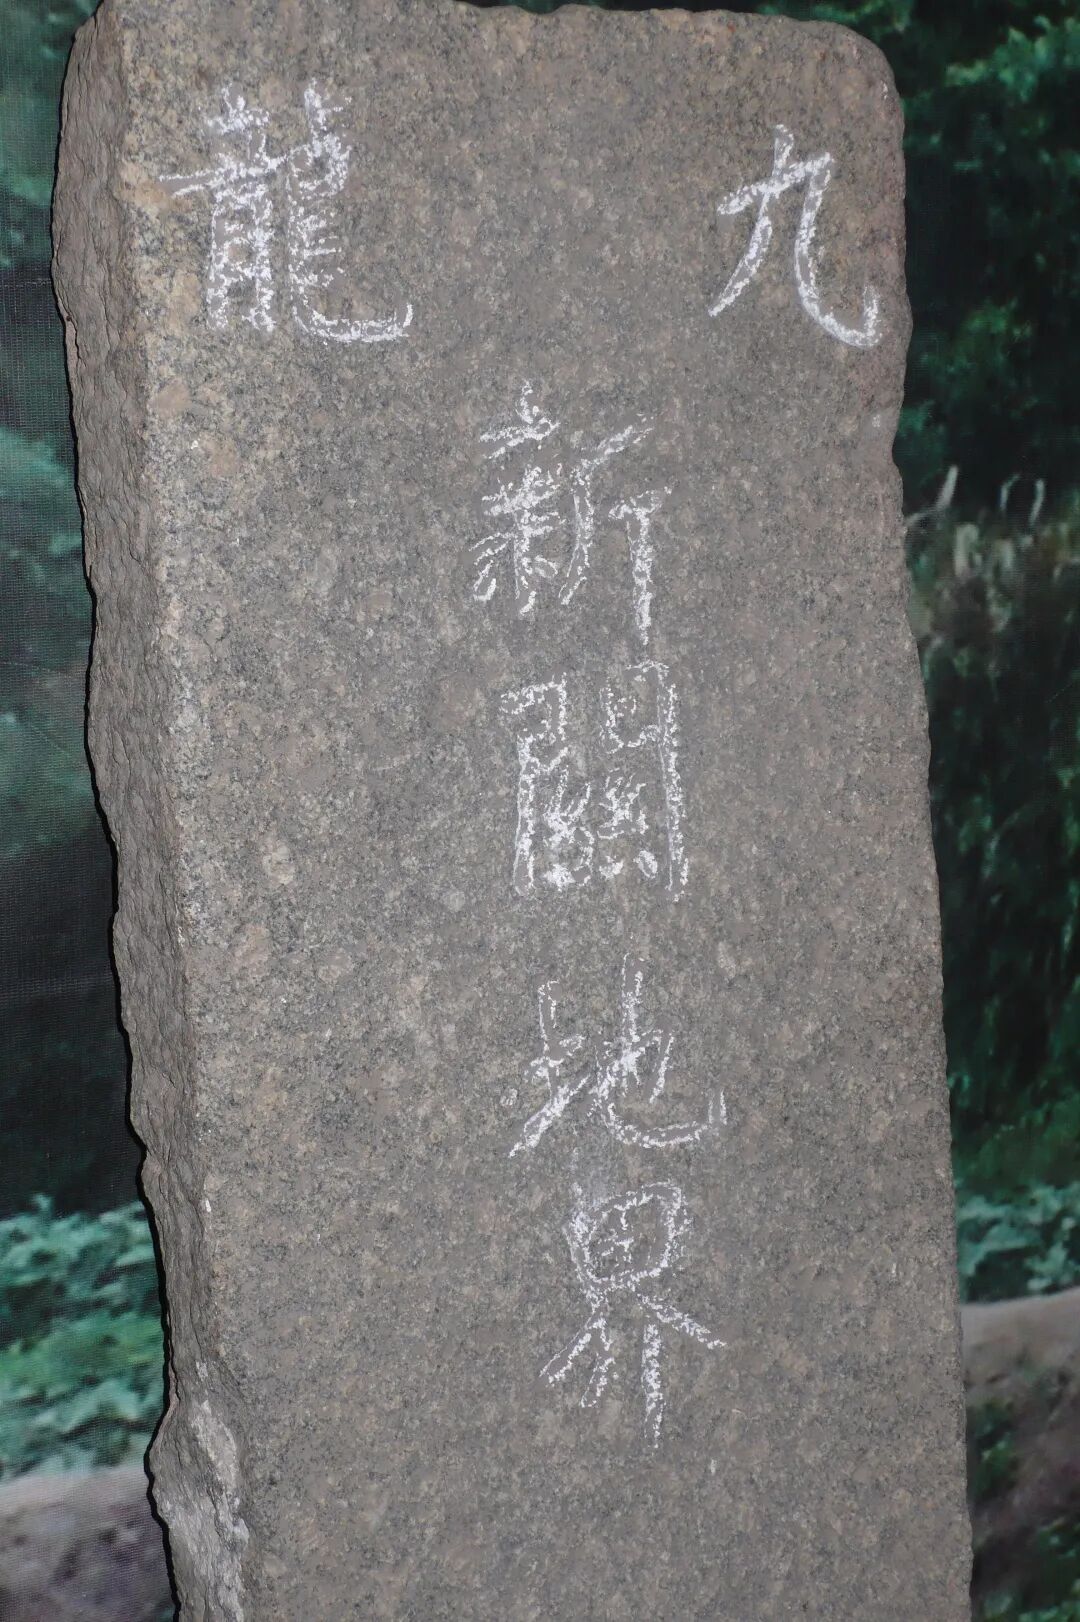 九龍
新關地界